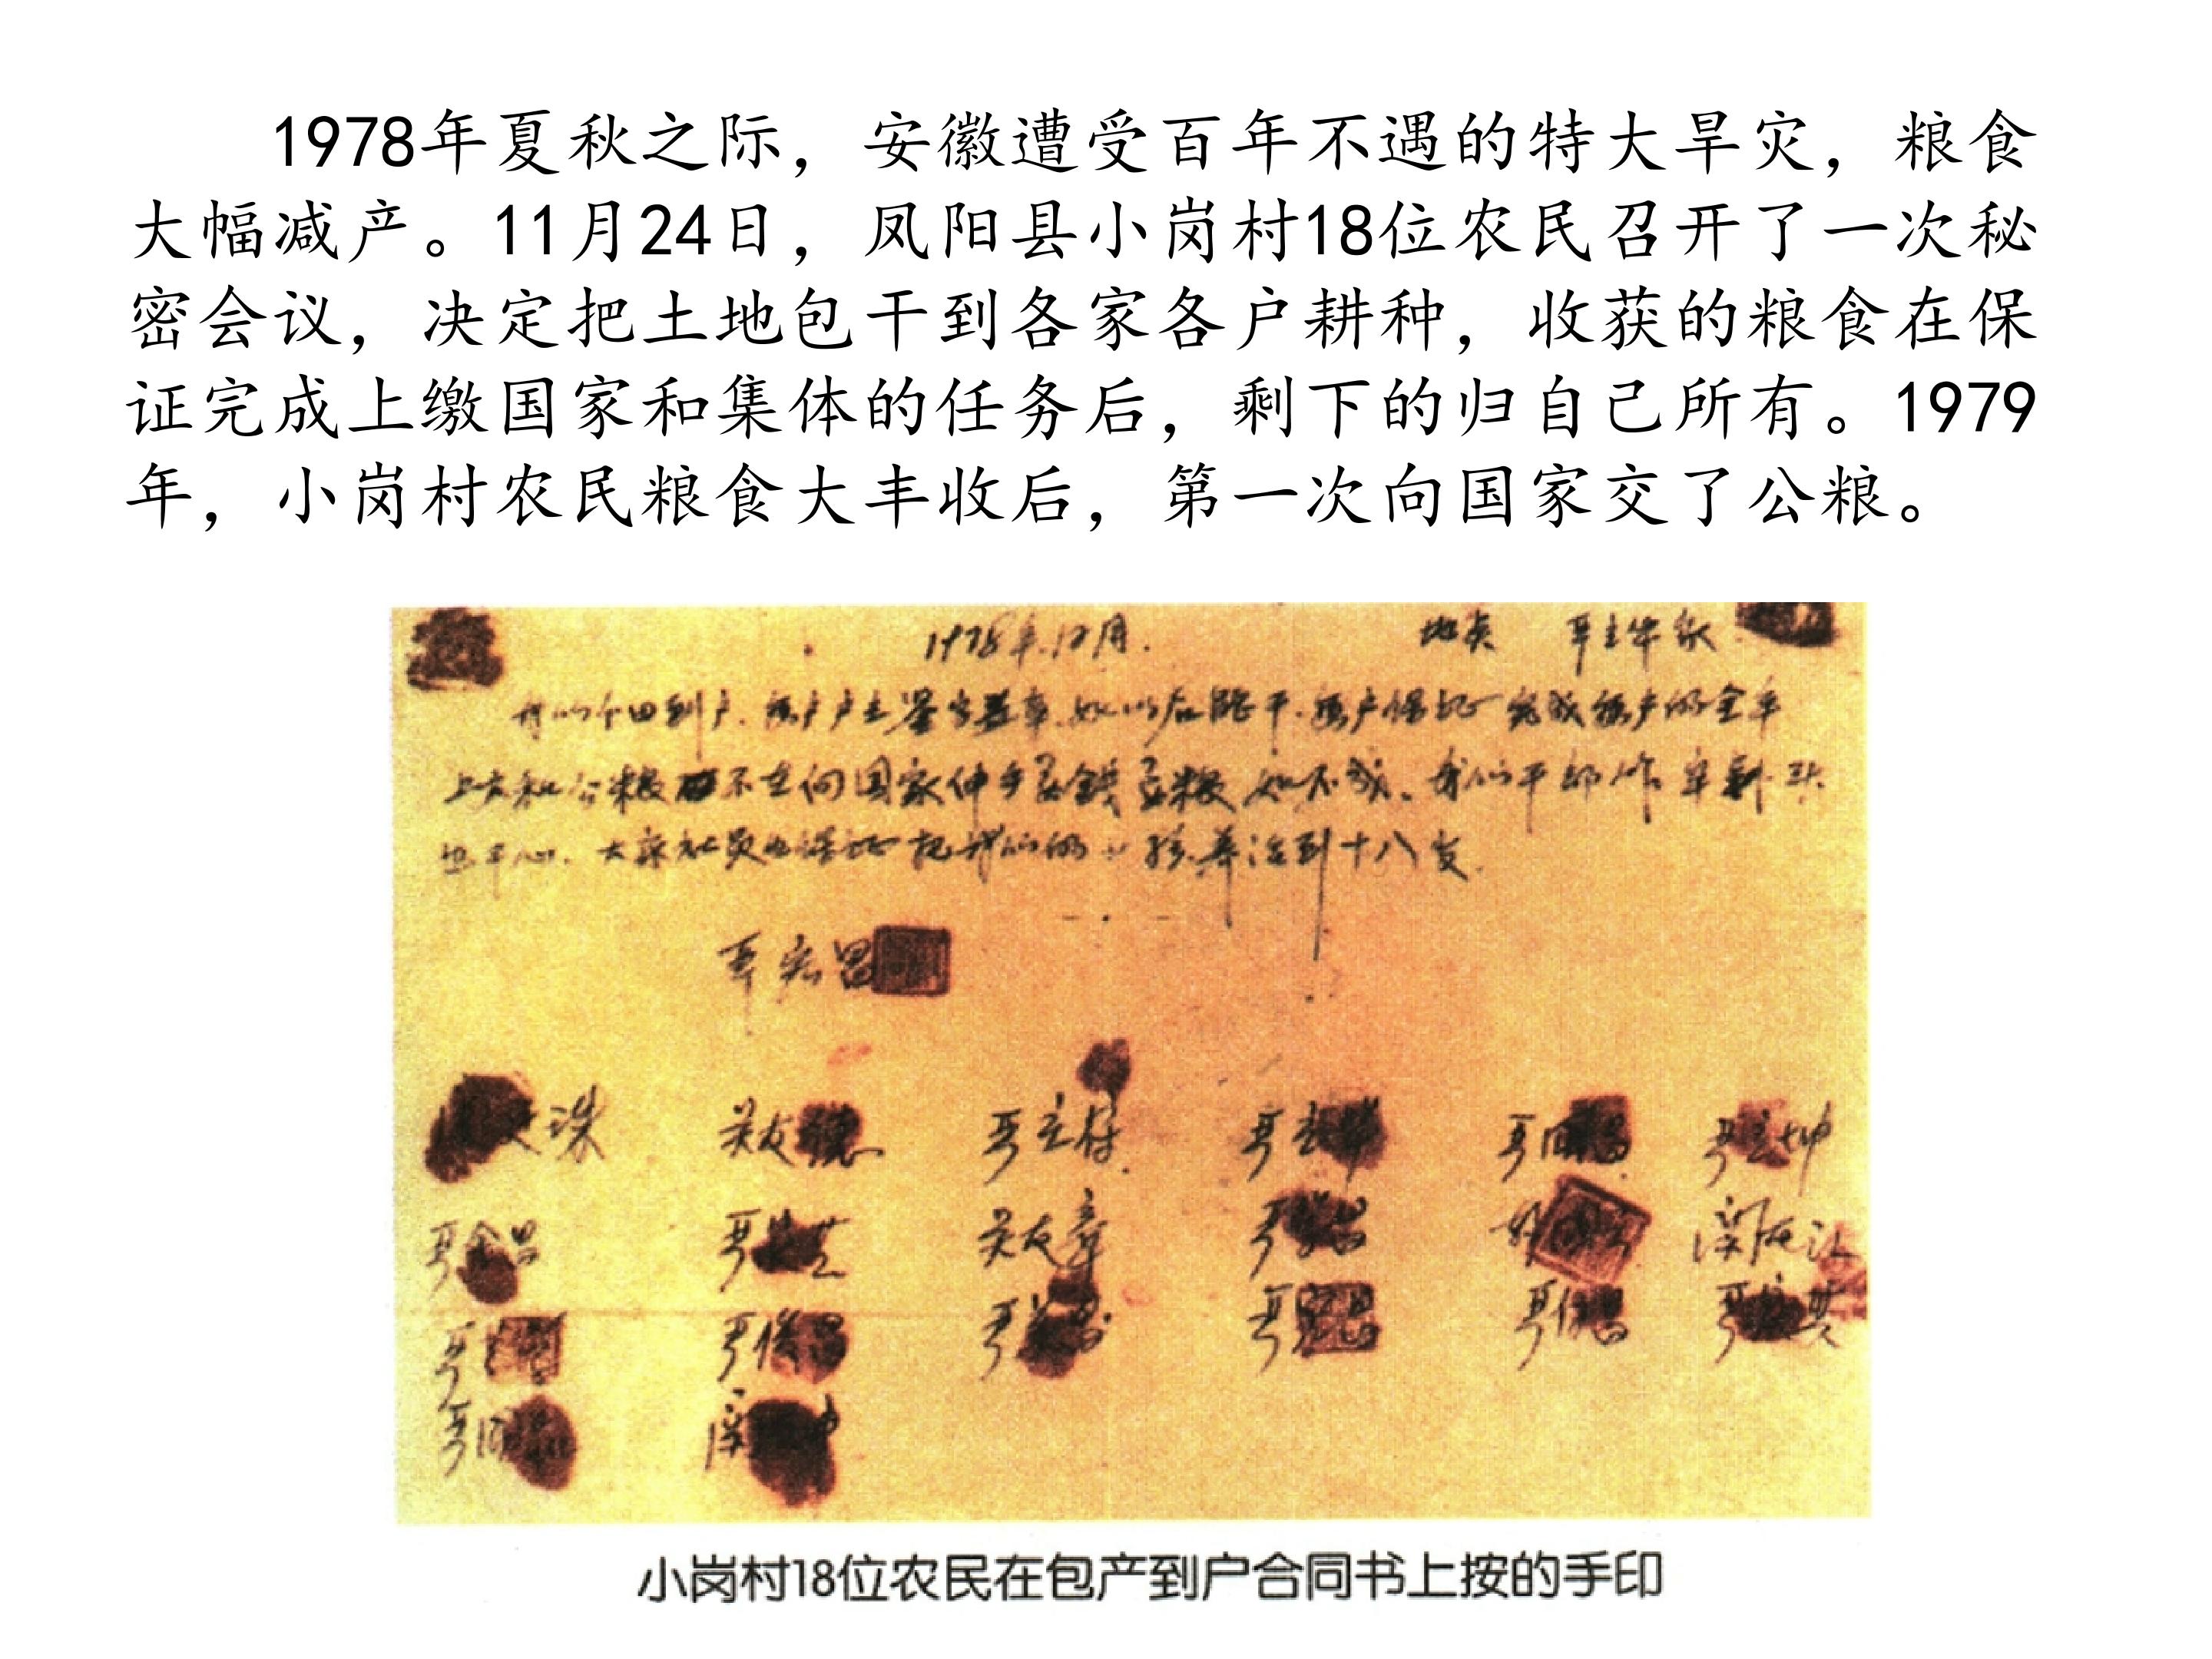 1978年夏秋之际，安徽遭受百年不遇的特大旱灾，粮食
大幅减产。11月24日，凤阳县小岗村18位农民召开了一次秘
密会议，决定把土地包干到各家各户耕种，收获的粮食在保
证完成上缴国家和集体的任务后，剩下的归自己所有。1979
年，小岗村农民粮食大丰收后，第一次向国家交了公粮。
1978年12月. 地点 严立华家
我们分田到户.每户户主签字盖章.如以后能干.每户保证完成每户的全年
上交和公粮不在向国家伸手要钱要粮如不成.我们干部作牢割头
也干心.大家社员也保证把我们的小孩养活到十八岁.
严宏昌
关友德 严立付 严立坤
关友章
严俊昌
小岗村18位农民在包产到户合同书上按的手印